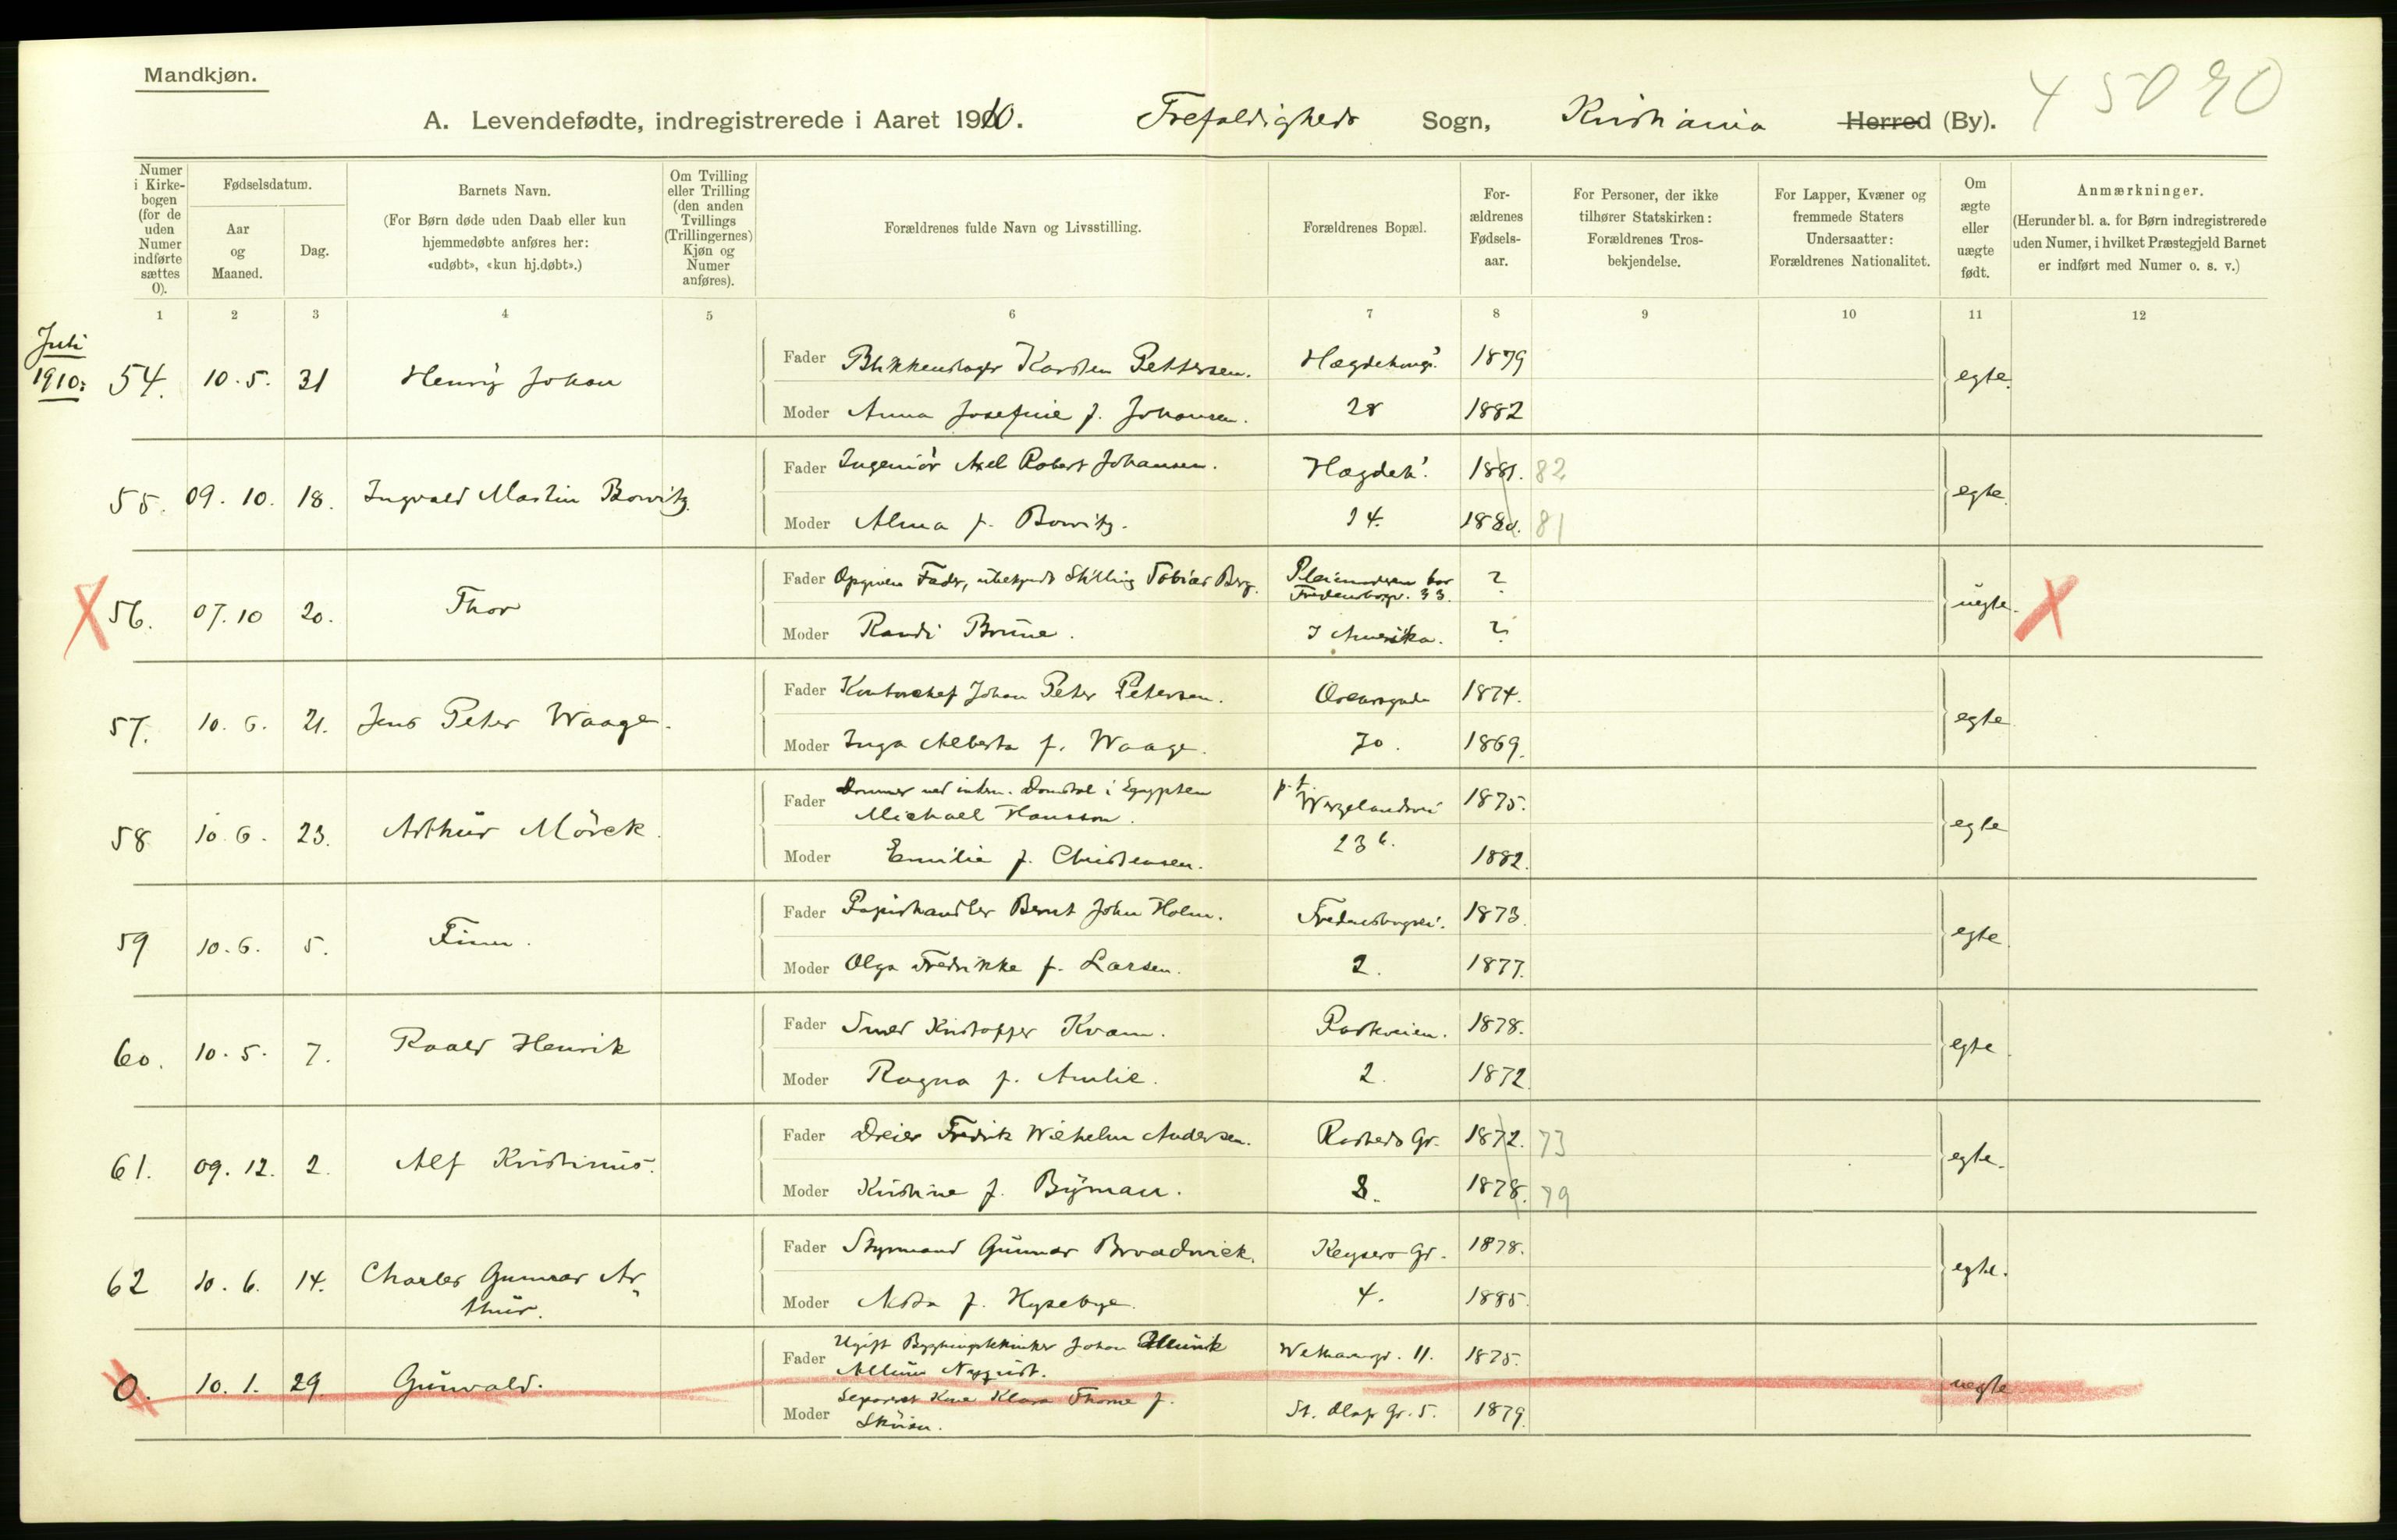 Mandkjøn.
45090
A. Levendefødte, indregistrerede i Aaret 1910. Trefoldigheds Sogn, Kristiania Herred (By).
Numer i Kirkebogen (for de uden Numer indførte sættes 0).
Fødselsdatum.
Aar og Maaned.
Dag.
Barnets Navn.
(For Børn døde uden Daab eller kun hjemmedøbte anføres her: «udøbt», «kun hj.døbt».)
Om Tvilling eller Trilling (den anden Tvillings (Trillingernes) Kjøn og Numer anføres).
Forældrenes fulde Navn og Livsstilling.
Forældrenes Bopæl.
Forældrenes Fødselsaar.
For Personer, der ikke tilhører Statskirken: Forældrenes Trosbekjendelse.
For Lapper, Kvæner og fremmede Staters Undersaatter: Forældrenes Nationalitet.
Om ægte eller uægte født.
Anmærkninger.
(Herunder bl. a. for Børn indregistrerede uden Numer, i hvilket Præstegjeld Barnet er indført med Numer o. s. v.)
1 2 3 4 5 6 7 8 9 10 11 12
Juli
1910:
54. 10. 5. 31 Henry Johan
Fader Blikkenslager Karsten Pettersen. Hægdehaugs. 1879
Moder Anna Josefine f. Johansen. 28 1882
egte.
55. 09. 10. 18. Ingvald Martin Bowitz.
Fader Ingeniör Axel Robert Johansen. Hægdeh. 1881. 82
Moder Alma f. Bowitz. 14. 1880. 81
egte.
X 56. 07. 10 20. Thor
Fader Opgiven Fader, ubekjendt Stilling Tobias Berg. Pleiemoderen bor ?
Fredensborgv. 33.
Moder Randi Brune. I Amerika. ?
uegte. X
57. 10. 6. 21. Jens Peter Waage.
Fader Kontorchef Johan Peter Petersen. Oscarsgade 1874.
Moder Inga Alberta f. Waage. 70. 1869.
egte
58 10. 6. 23. Arthur Mörck.
Fader Dommer ved intern. Domstol i Egypten p.t. Wergelandsvei 1875.
Michael Hansson.
Moder Emilie f. Christensen. 23 b. 1882.
egte
59 10. 6. 5. Finn.
Fader Papirhandler Bernt John Holm. Fredensborgvei. 1873.
Moder Olga Fredrikke f. Larsen. 2. 1877.
egte
60. 10. 5. 7. Roald Henrik
Fader Smed Kristoffer Kvam. Parkveien. 1878.
Moder Ragna f. Amlie. 2. 1872
egte
61. 09. 12. 2. Alf Kristinus.
Fader Dreier Fredrik Wilhelm Andersen. Rosteds Gr. 1872. 73
Moder Kristine f. Byman. 8. 1878. 79
egte.
62 10. 6. 14. Charles Gunnar Ar-
thur.
Fader Styrmand Gunnar Broadwick. Keysers Gr. 1878.
Moder Asta f. Hysebye. 4. 1885.
egte.
0. 10. 1. 29. Gunvald.
Fader Ugift Bygningstekniker Johan
Nyquist. 11. 1875.
Moder Separeret Kone Klara Thorne f.
Skøien. St. Olafs Gr. 5. 1879.
uegte